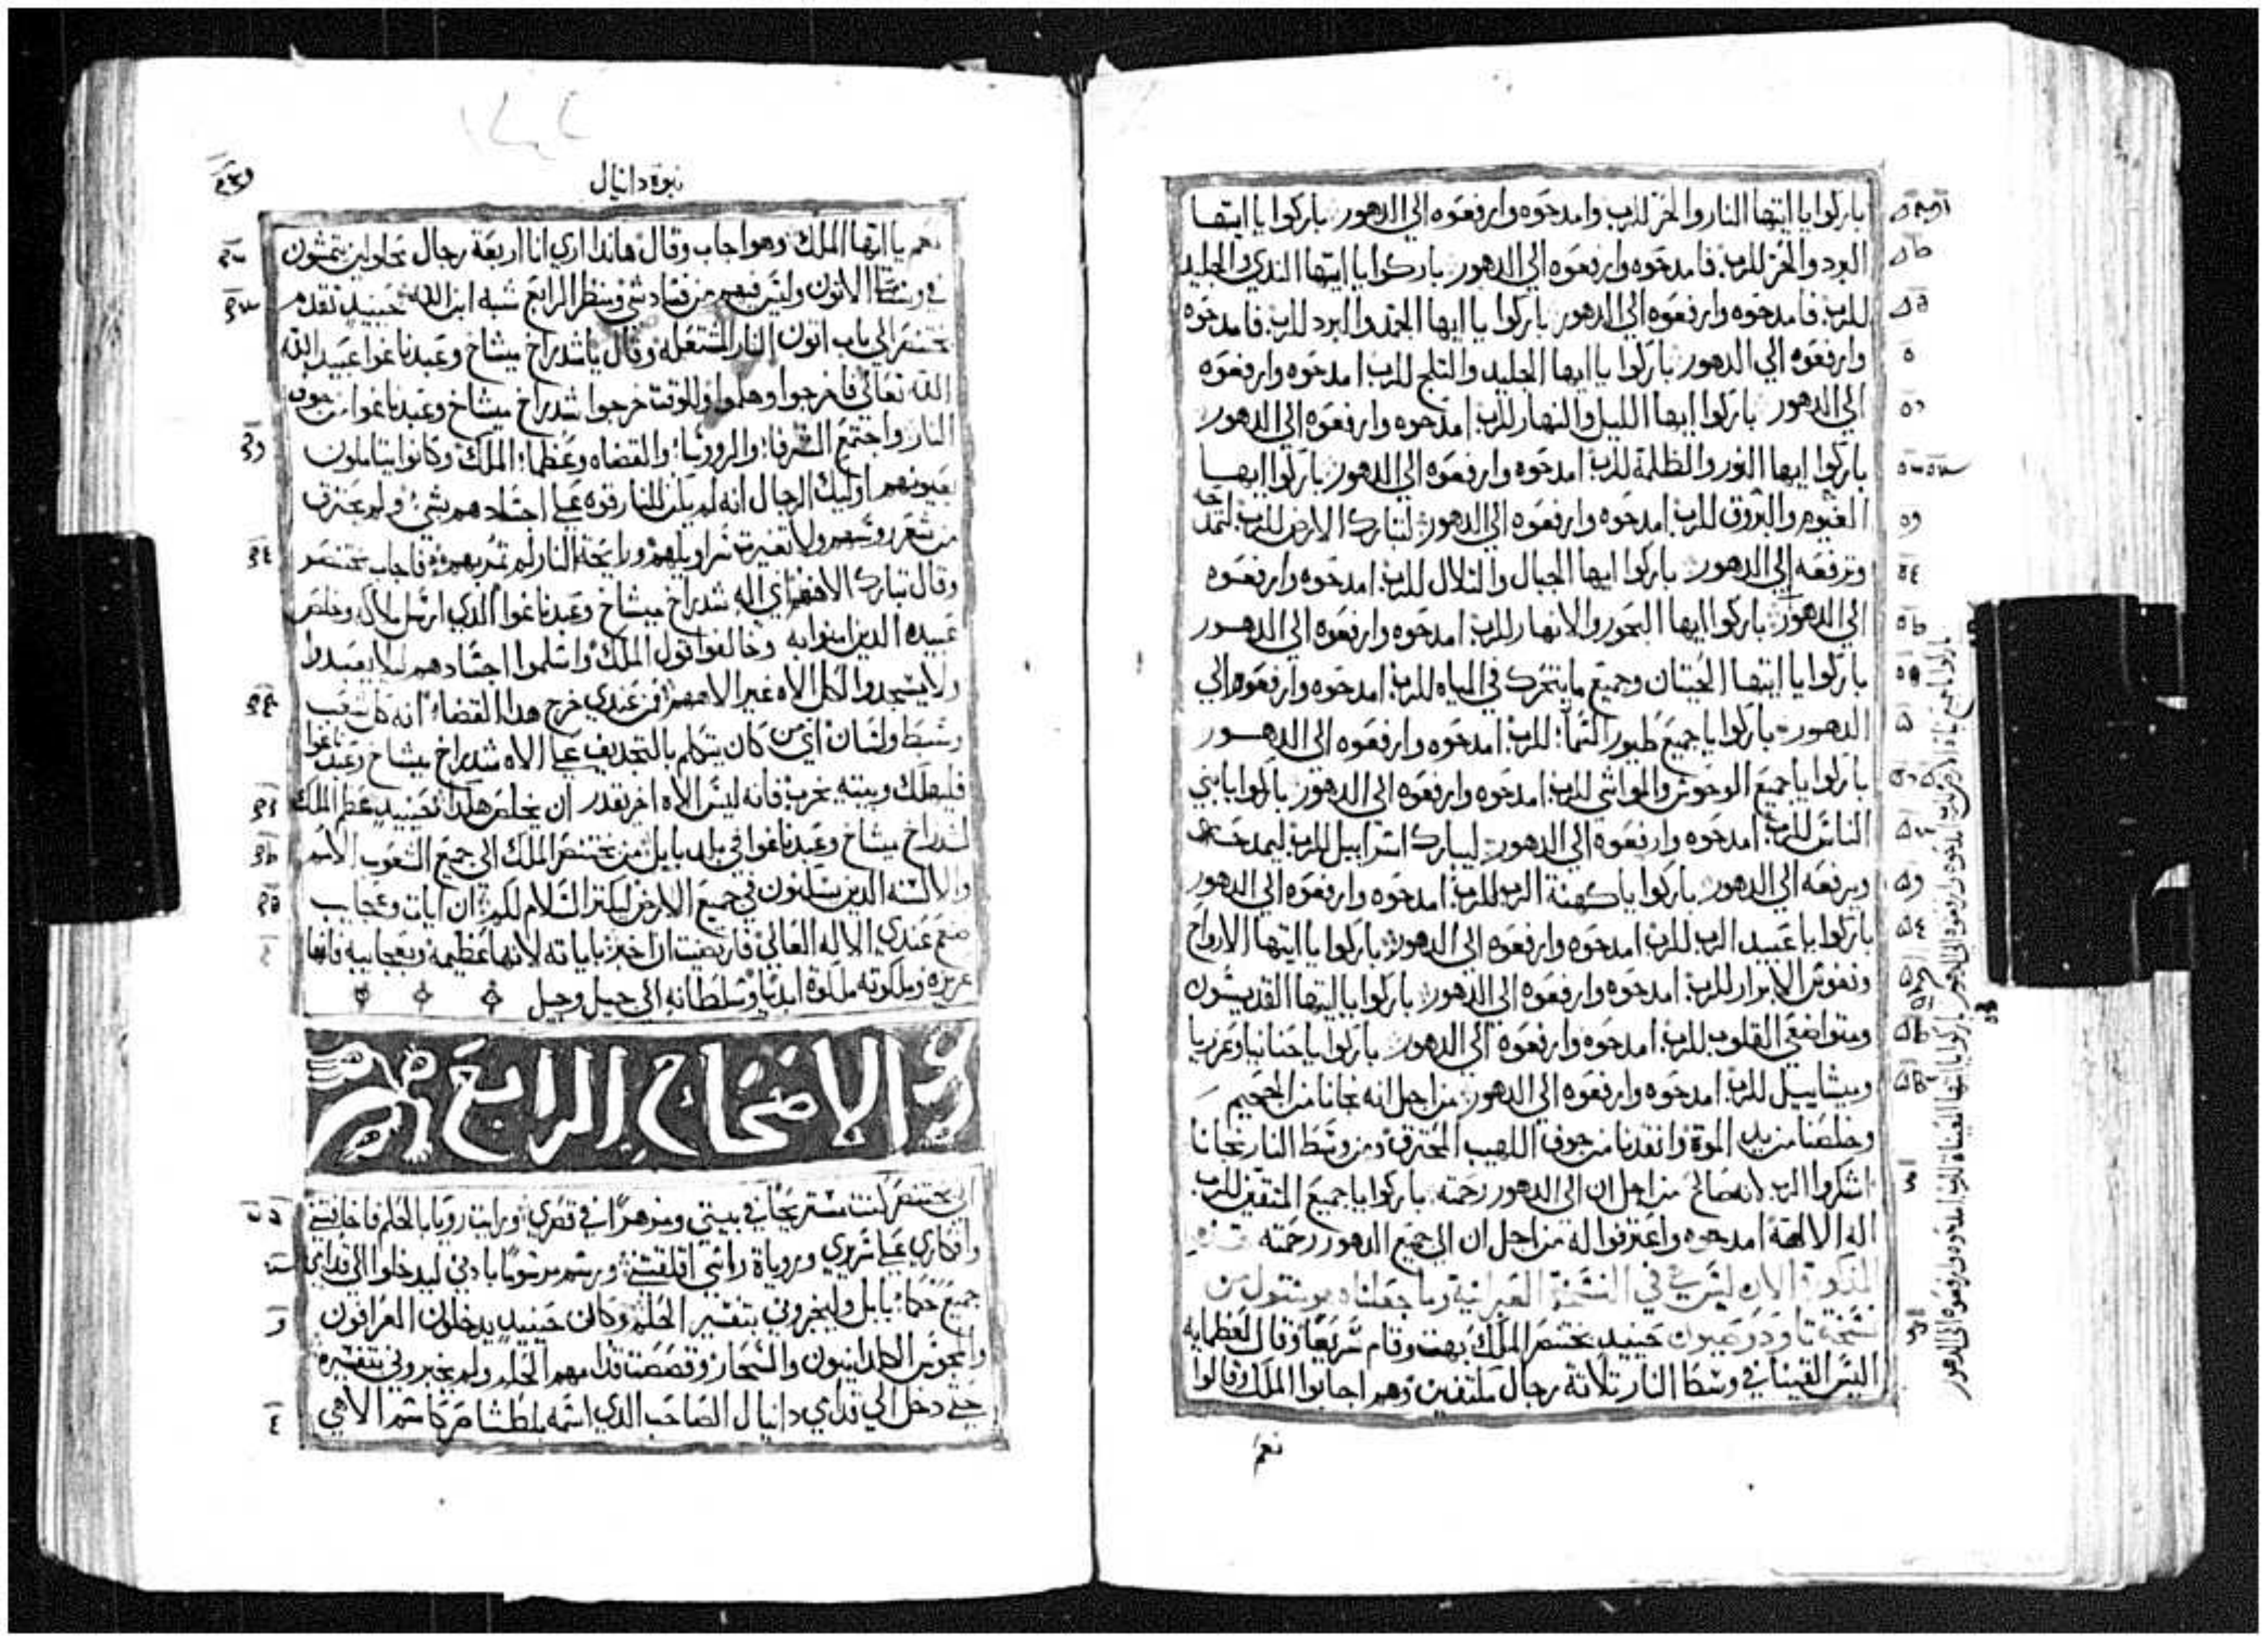 باركوا يا ايتها النار والحر للرب وامدحوه وارفعوه الي الدهور باركوا يا ايتها
البرد والحر للرب فامدحوه وارفعوه الي الدهور باركوا يا ايتها الندي والجليد
للرب فامدحوه وارفعوه الي الدهور باركوا يا ايها الجمد والبرد للرب فامدحوه
وارفعوه الي الدهور باركوا يا ايها الجليد والتلج للرب امدحوه وارفعوه
الي الدهور باركوا ايها الليل والنهار للرب امدحوه وارفعوه الي الدهور
باركوا ايها النور والظلمة للرب امدحوه وارفعوه الي الدهور باركوا ايها
الغيوم والبروق للرب امدحوه وارفعوه الي الدهور لتبارك الارض للرب لتمدحه
وترفعه الي الدهور باركوا ايها الجبال والتلال للرب امدحوه وارفعوه
الي الدهور باركوا ايها البحور والانهار للرب امدحوه وارفعوه الي الدهور
باركوا يا ايتها الحيتان وجميع ما يتحرك في المياه للرب امدحوه وارفعوه الي
الدهور باركوا يا جميع طيور السما للرب امدحوه وارفعوه الي الدهور
باركوا يا جميع الوحوش والمواشي للرب امدحوه وارفعوه الي الدهور باركوا يا بني
الناس للرب امدحوه وارفعوه الي الدهور ليبارك اسراييل للرب ليمدحه
ويرفعه الي الدهور باركوا يا كهنة الرب للرب امدحوه وارفعوه الي الدهور
باركوا يا عبيد الرب للرب امدحوه وارفعوه الي الدهور باركوا يا ايتها الارواح
ونفوس الابرار للرب امدحوه وارفعوه الي الدهور باركوا يا ايتها القديسون
ومتواضعي القلوب للرب امدحوه وارفعوه الي الدهور باركوا يا حنانيا وعزريا
وميشاييل للرب امدحوه وارفعوه الي الدهور من اجل انه نجانا من الجحيم
وخلصنا من يد الموة وانقدنا من جوف اللهيب المحترق ومن وسط النار نجانا
اشكروا الرب لانه صالح من اجل ان الي الدهور رحمته باركوا يا جميع المتقين للرب
اله الالهة امدحوه واعترفوا له من اجل ان الي جميع الدهور رحمته
المدكورة الان ليس هي في النسخة العبرانية وما جعلناه هو منقول من
نسخة تاودوصيون حينيد بختنصر الملك بهت وقام سريعا وقال لعظمايه
اليس القينا في وسط النار تلاتة رجال ملتفين وهم اجابوا الملك وقالوا
نعم
باركوا يا جميع نبات الارض للرب امدحوه وارفعوه الي الدهور باركوا يا ايتها العيناة للرب امدحوه وارفعوه الي الدهور
نبوة دانيال
نعم يا ايها الملك وهو اجاب وقال هاندا اري انا اربعة رجال محلولين يتمشون
في وسط الاتون وليس فيهم من فساد شي ومنظر الرابع شبه ابن الله حينيد تقدم
بختنصر الي باب اتون النار المشتعله وقال يا شدراخ ميشاخ وعبدناغوا عبيد الله
الله تعالي فاخرجوا وهلموا وللوقت خرجوا شدراخ ميشاخ وعبدناغوا من جوف
النار واجتمع الشرفا والرووسا والقضاه وعظما الملك وكانوا يتاملون
بعيونهم اوليك الرجال انه لم يكن للنار قوه علي اجسادهم بشي ولم يحترق
من شعر رووسهم ولا تغيرت سراويلهم ورايحة النار لم تمر بهم فاجاب بختنصر
وقال تبارك الاههم اي اله شدراخ ميشاخ وعبدناغوا الدي ارسل ملاكه وخلص
عبيده الدين امنوا به وخالفوا قول الملك واسلموا اجسادهم ليلا يعبدوا
ولا يسجدوا لكل الاه غير الاههم فمن عندي خرج هدا القضا انه كل شعب
وسبط ولسان اي من كان يتكلم بالتجديف علي الاه شدراخ ميشاخ وعبدناغوا
فليهلك وبيته يخرب فانه ليس الاه اخر يقدر ان يخلص هكدا حينيد عظم الملك
لشدراخ ميشاخ وعبدناغوا في بلد بابل من بختنصر الملك الي جميع الشعوب الامم
والالسنه الدين يسكنون في جميع الارض ليكتر السلام لكم ان ايات وعجايب
صنع عندي الاله العالي فارتضيت ان اخبر باياته لانها عظيمه وبعجايبه فانها
عزيزه وملكوته ملكوة ابديا وسلطانه الي جيل وجيل
الاصحاح الرابع
انا بختنصر كنت مستريحا في بيتي ومزهرا في قصري ورايت رويا بالحلم فاخافتني
وافكاري علي سريري وروياة راسي اقلقتني ورسم مرسوما بادني ليدخلوا الي قدامي
جميع حكما بابل وليخبروني بتفسير الحلم وكان حينيد يدخلون العرافون
والمجوس الكلدانيون والسحار وقصصت قدامهم الحلم ولم يخبروني بتفسيره
حتي دخل الي قدامي دانيال الصاحب الدي اسمه بلطشاصر كاسم الاهي